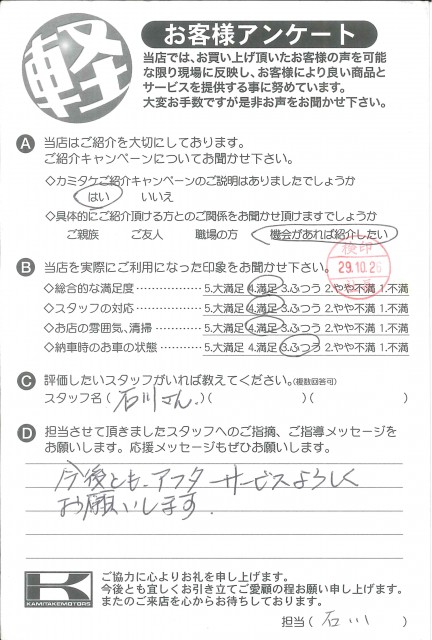 軽
お客様アンケート
当店では、お買い上げ頂いたお客様の声を可能
な限り現場に反映し、お客様により良い商品と
サービスを提供する事に努めています。
大変お手数ですが是非お声をお聞かせ下さい。
A 当店はご紹介を大切にしております。
ご紹介キャンペーンについてお聞かせ下さい。
◇カミタケご紹介キャンペーンのご説明はありましたでしょうか
はい いいえ
◇具体的にご紹介頂ける方とのご関係をお聞かせ頂けますでしょうか
ご親族 ご友人 職場の方 機会があれば紹介したい
検印
29.10.26
B 当店を実際にご利用になった印象をお聞かせ下さい。
◇総合的な満足度 5.大満足 4.満足 3.ふつう 2.やや不満 1.不満
◇スタッフの対応 5.大満足 4.満足 3.ふつう 2.やや不満 1.不満
◇お店の雰囲気、清掃 5.大満足 4.満足 3.ふつう 2.やや不満 1.不満
◇納車時のお車の状態 5.大満足 4.満足 3.ふつう 2.やや不満 1.不満
C 評価したいスタッフがいれば教えてください。(複数回答可)
スタッフ名(石川さん)( )( )
D 担当させて頂きましたスタッフへのご指摘、ご指導メッセージを
お願いします。応援メッセージもぜひお願いします。
今後とも、アフターサービスよろしく
お願いします.
K
KAMITAKEMOTORS
ご協力に心よりお礼を申し上げます。
今後とも宜しくお引き立てご愛顧の程お願い申し上げます。
またのご来店を心からお待ちしております。
担当(石川)